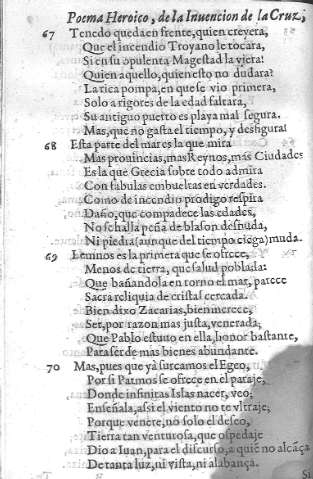 Poema Heroico, de la Inuencion de la Cruz,
67 Tenedo queda en frente, quien creyera,
Que el incendio Troyano le tocara,
Si en su opulenta Magestad la viera!
Quien aquello, quien esto no dudara?
La rica pompa, en que se vio primera,
Solo a rigores de la edad faltara,
Su antiguo puerto es playa mal segura.
Mas, que no gasta el tiempo, y desfigura!
68 Esta parte del mar es la que mira
Mas prouincias, mas Reynos, mas Ciudades
Es la que Grecia sobre todo admira
Con fabulas embueltas en verdades.
Como de incendio prodigo respira
Daño, que compadece las edades,
No se halla peña de blason desnuda,
Ni piedra (aunque del tiempo ciega) muda.
69 Lemnos es la primera que se ofrece,
Menos de tierra, que salud poblada:
Que bañandola en torno el mar, parece
Sacra reliquia de cristal cercada.
Bien dixo Zacarias, bien merece,
Ser, por razon mas justa, venerada,
Que Pablo estuuo en ella, honor bastante,
Para ser de mas bienes abundante.
70 Mas, pues que yà surcamos el Egeo,
Por si Patmos se ofrece en el paraje,
Donde infinitas Islas nacer, veo;
Enseñala, assi el viento no te vltraje;
Porque venere, no solo el deseo,
Tierra tan venturosa, que ospedaje
Dio a Iuan, para el discurso, a quiē no alcāça
De tanta luz, ni vista, ni alabança.
Si